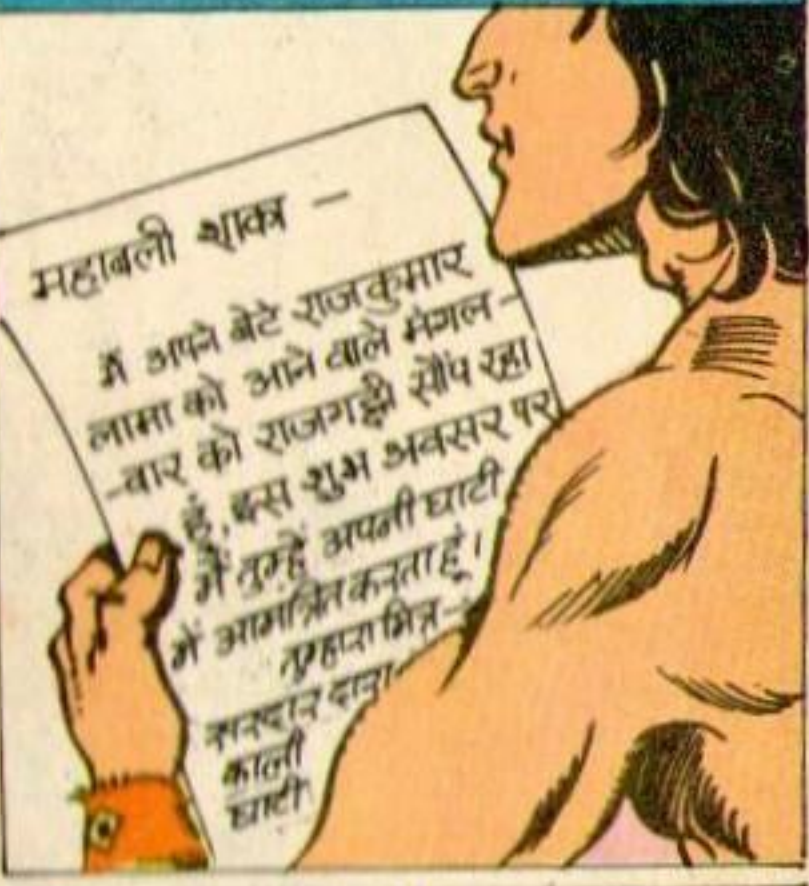 महाबली शाका —
मैं अपने बेटे राजकुमार
लामा को आने वाले मंगल-
-वार को राजगद्दी सौंप रहा
हूं, इस शुभ अवसर पर
मैं तुम्हें अपनी घाटी
में आमन्त्रित करता हूं।
तुम्हारा मित्र-
सरदार दारा
काली
घाटी